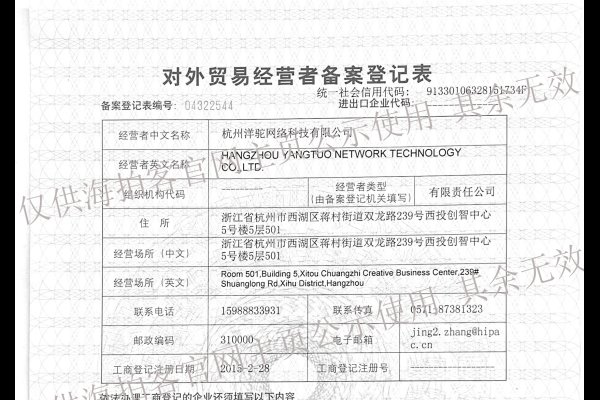 对外贸易经营者备案登记表
统一社会信用代码: 91330106328151734F
备案登记表编号: 04322544
进出口企业代码: ------------
经营者中文名称 杭州洋驼网络科技有限公司
经营者英文名称 HANGZHOU YANGTUO NETWORK TECHNOLOGY
CO.,LTD.
组织机构代码 ---------- 经营者类型
(由备案登记机关填写) 有限责任公司
住 所 浙江省杭州市西湖区蒋村街道双龙路239号西投创智中心
5号楼5层501
经营场所(中文) 浙江省杭州市西湖区蒋村街道双龙路239号西投创智中心
5号楼5层501
经营场所(英文) Room 501,Building 5,Xitou Chuangzhi Creative Business Center,239#
Shuanglong Rd,Xihu District,Hangzhou
联系电话 15988833931 联系传真 0571-87381323
邮政编码 310000 电子邮箱 jing2.zhang@hipa
c.cn
工商登记注册日期 2015-2-28 工商登记注册号 ------------
依法办理工商登记的企业还须填写以下内容
仅供海拍客官网主页公示使用 其余无效
仅供海拍客官网主页公示使用 其余无效